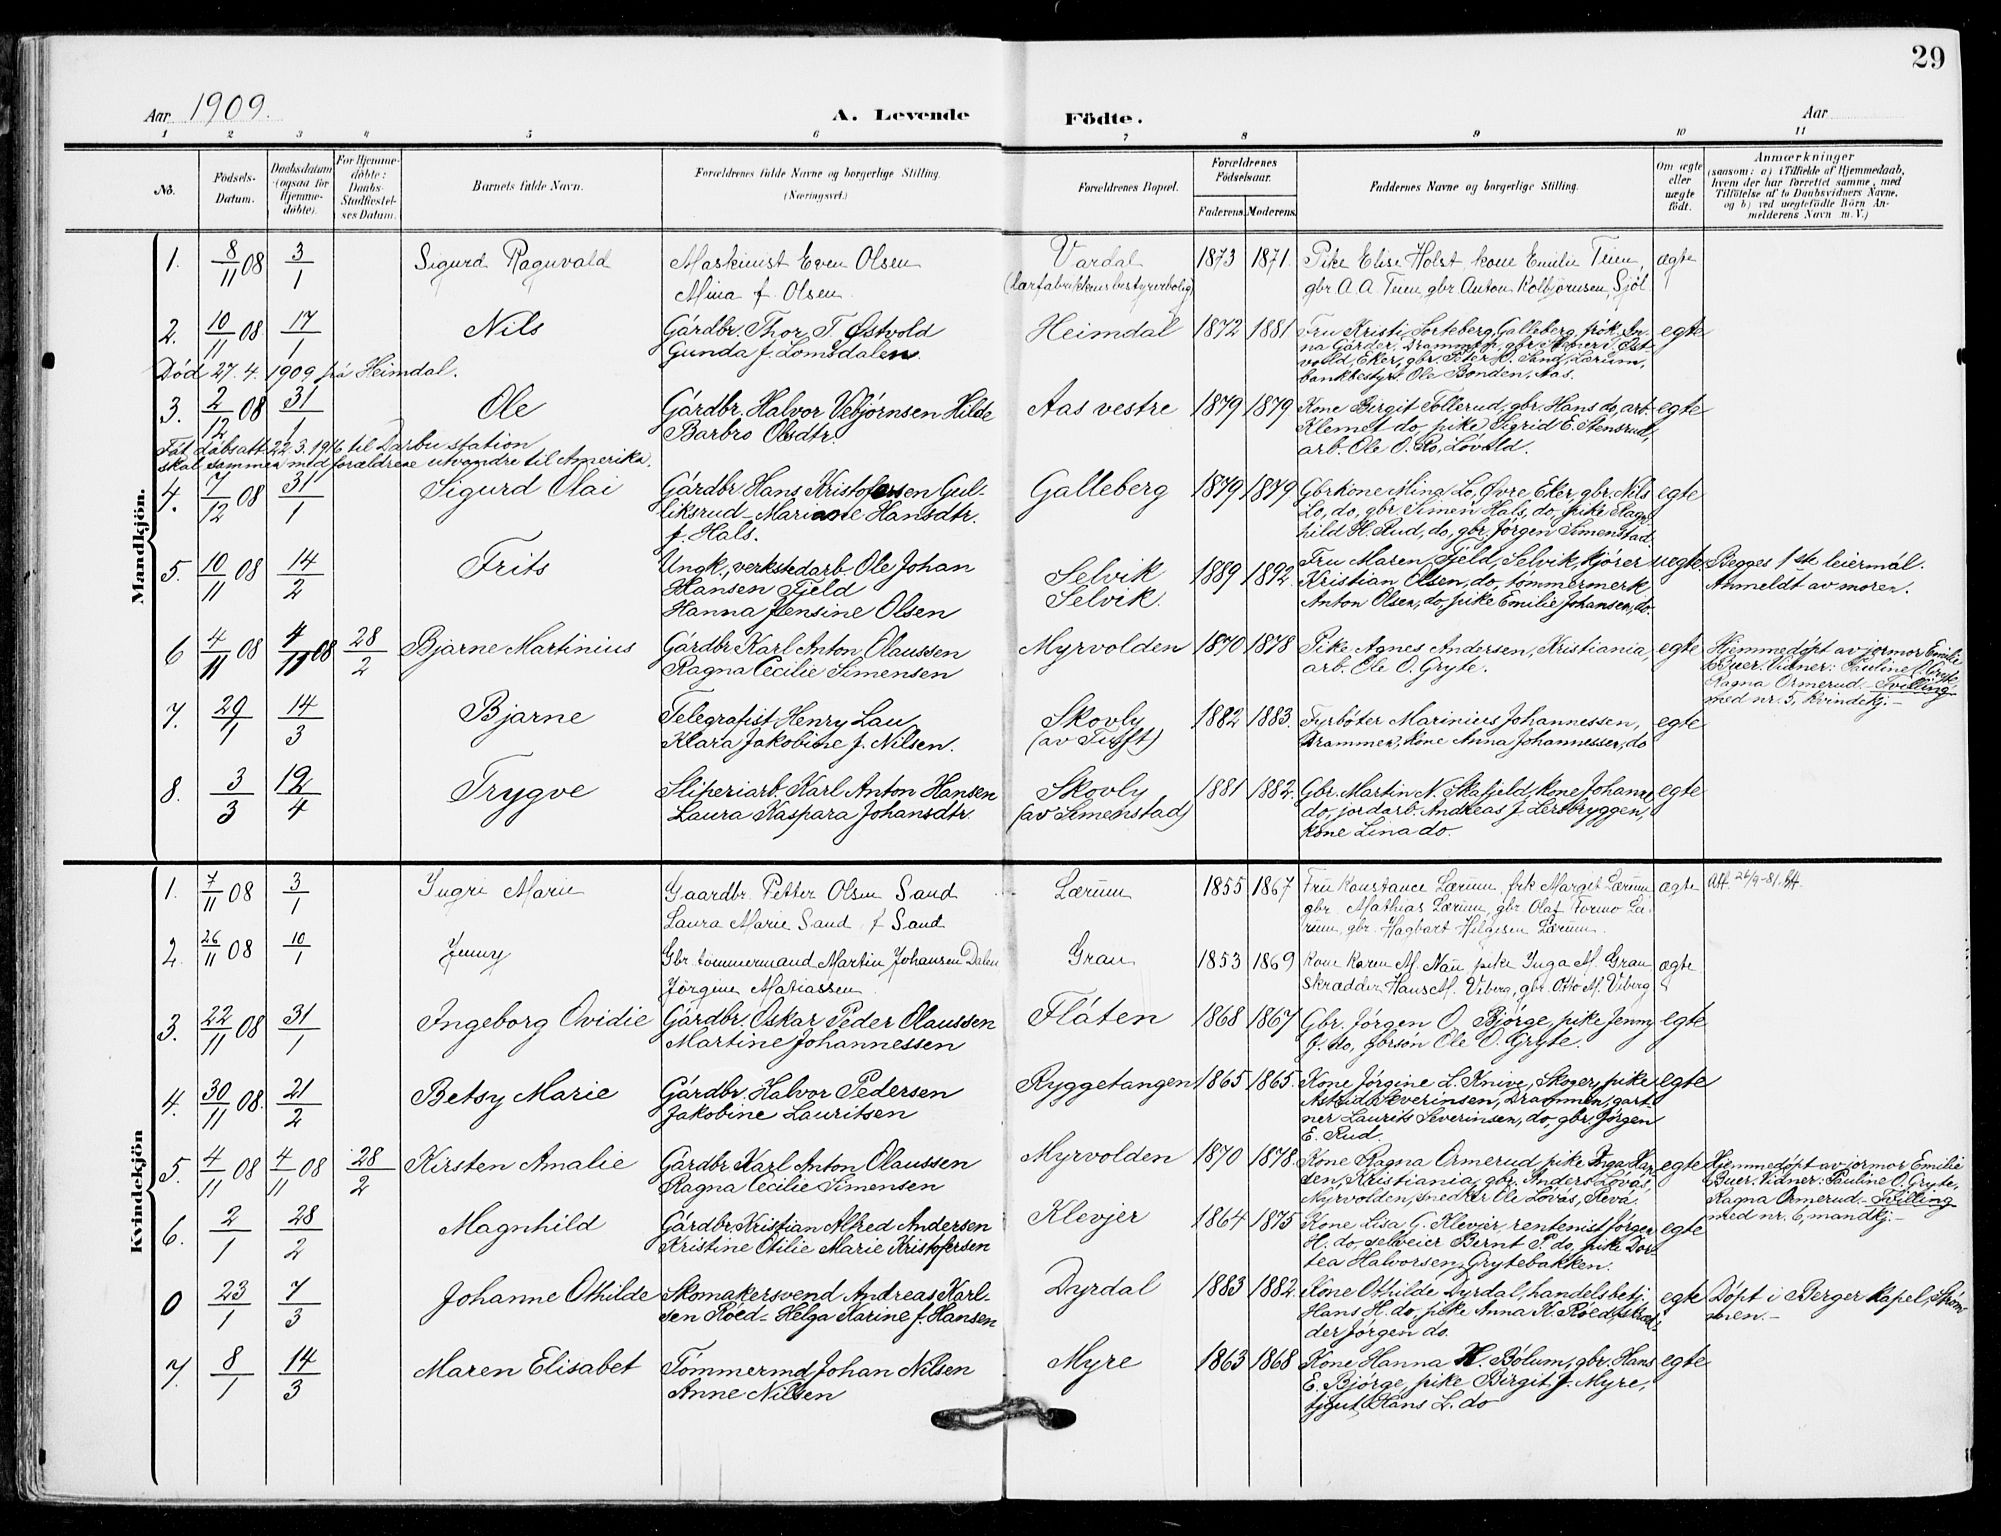 29
Aar 1909.
A. Levende Födte.
Aar
1 2 3 4 5 6 7 8 9 10 11
No.
Födsels-Datum.
Daabsdatum (ogsaa for Hjemme-döbte).
For Hjemme-döbte: Daabs-Stadfæstel-ses Datum.
Barnets fulde Navn.
Forældrenes fulde Navne og borgerlige Stilling. (Næringsvei.)
Forældrenes Bopæl.
Forældrenes Födselsaar.
Faderens. Moderens.
Faddernes Navne og borgerlige Stilling.
Om ægte eller uægte födt.
Anmærkninger
(saasom: a) i Tilfælde af Hjemmedaab,
hvem der har forrettet samme, med
Tilföielse af to Daabsvidners Navne,
og b) ved uægtefödte Börn An-
melderens Navn m. V.)
Mandkjön.
1. 8/11 08 3/1 Sigurd Ragnvald Maskinist Even Olsen Vardal 1873 1871. Pike Elise Holst, kone Emilie Tuen, ægte
Mina f. Olsen. gbr A. A. Tuen, gbr Anton Kolbjørnsen, Sjøl
2. 10/11 08 17/1 Nils Gårdbr. Thor T. Østvold Heimdal 1872 1881. Fru Kristi Sorteberg, Galleberg, frøk. An- egte
Gunda f. Lomsdalen. na Gårder, Drammen, gbr. T. Øst-
vold Eker, gbr. Peter O. Sand, Lærum,
Død 27.4. 1909 på Heimdal. bankbestyr. Ole Bonden, Aas.
3. 2/12 08 31/1 Ole Gårdbr. Halvor Vebjørnsen Hilde Aas vestre 1879 1879 Kone Birgit Tollerud, gbr. Hans do, arb. egte
Barbro Olsdtr. Klemet do, pike Sigrid E. Stensrud,
arb. Ole O. Ro, Løvald.
Fåt dåbsatt. 22.3.1916 til Darbu station
skal sammen med forældrene utvandre til Amerika.
4. 7/12 08 31/1 Sigurd Olai Gårdbr. Hans Kristofersen Gul- Galleberg 1879 1879 Gbrkone Mina Lo, Øvre Eker, gbr. Nils egte
liksrud – Mariane Hansdtr. Lo, do, gbr. Simen Hals, do, pike Ragn-
f. Hals. hild H. Rud, do, gbr. Jørgen Simenstad.
5. 10/11 08 14/2 Frits Ungk., verkstedarb. Ole Johan Selvik 1889 1892. Fru Maren Fjeld, Selvik, Hjører uegte Begges 1ste leiermål.
Hansen Fjeld Selvik. Kristian Olsen, do, tømmermerk Anmeldt av moren.
Hanna Jensine Olsen Anton Olsen, do, pike Emilie Johansen, do.
6 4/11 08 4/11 08 28/2 Bjarne Martinius Gårdbr. Karl Anton Olaussen Myrvolden 1870 1878 Pike Agnes Andersen, Kristiania, egte Hjemmedøpt av jormor Emilie
Ragna Cecilie Simensen arb. Ole O. Gryte. Buer. Vidner: Pauline O. Gryte,
Ragna Ormerud. – Tvilling
med nr. 5, kvindekj. –
7. 29/1 14/3 Bjarne Telegrafist Henry Lau Skovly 1882 1883. Fyrbøter Marinius Johannessen, egte
Klara Jakobine f. Nilsen. (av Tufft) Drammen, kone Anna Johannessen, do
8. 3/3 12/4 Trygve Sliperiarb. Karl Anton Hansen Skovly 1881 1882. Gbr. Martin N. Skafjeld, kone Johanne egte
Laura Kaspara Johansdtr. (av Simenstad) do, jordarb. Andreas J. Lersbryggen,
kone Lina do.
Kvindekjön
1. 7/11 08 3/1 Ingri Marie Gaardbr Petter Olsen Sand Lærum 1855 1867 Fru Konstance Lærum, frk Margit Lærum ægte Att. 26/9-81.
Laura Marie Sand f Sand gbr. Mathias Lærum, gbr. Olaf Formo Læ-
rum, gbr. Hagbart Helgesen Lærum.
2. 26/11 08 10/1 Jenny Gbr. tømmermand Martin Johansen Dalen Gran 1853 1869 Kone Karen M. Nau, pike Inga M. Gran ægte
Jørgine Matiassen skrædder Hans M. Viberg, gbr. Otto M. Viberg
3. 22/11 08 31/1 Ingeborg Ovidie Gårdbr. Oskar Peder Olaussen Flåten 1868 1867 Gbr. Jørgen O. Bjørge, pike Jenny egte
Martine Johannessen J. do, gbrsøn Ole O. Gryte.
4. 30/11 08. 21/2 Betsy Marie Gårdbr. Halvor Pedersen Ryggetangen 1865 1865. Kone Jørgine L. Knive, Skoger, pike egte
Jakobine Lauritsen Astrid Severinsen, Drammen, gart-
ner Laurits Severinsen, do, gbr. Jørgen
E. Rud.
5. 4/11 08 4/11 08 28/2 Kirsten Amalie Gårdbr. Karl Anton Olaussen Myrvolden 1870 1878. Kone Ragna Ormerud, pike Inga Han- egte Hjemmedøpt av jormor Emilie
Ragna Cecilie Simensen sen, Kristiania, gbr. Anders Løvås, Buer. Vidner: Pauline O. Gryte,
Myrvolden, snedker Ole Løvås, Revå, Ragna Ormerud. – Tvilling
med nr. 6, mandkj. –
6. 2/1 28/2 Magnhild Gårdbr. Kristian Alfred Andersen Klevjer 1864 1875 Kone Lisa G. Klevjer, rentenist Jørgen egte
Kristine Otilie Marie Kristofersen H. do, selveier Bernt P. do, pike Dor-
tea Halvorsen, Grytebakken.
0 23/1 7/3 Johanne Othilde Skomakersvend Andreas Karl- Dyrdal 1883 1882. Kone Othilde Dyrdal, handelsbetj. egte Døpt i Berger kapel, Strøm
sen Røed – Helga Karine f. Hansen Hans H. do, pike Anna K. Røed, skræd- men. –
der Jørgen do.
7. 8/1 14/3 Maren Elisabet Tømmermd Johan Nilsen Myre 1863 1868 Kone Hanna H. Bolum, gbr. Hans egte
Anne Nilsen E. Bjørge, pike Birgit J. Myre,
tjgut Hans L. do